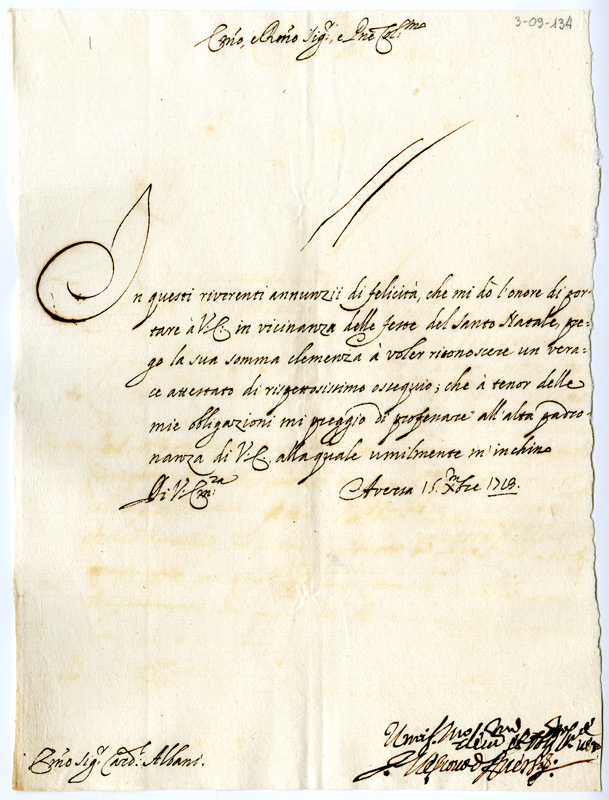 3-09-134
Em̃o, e Rmo Sig.r, e Pne Col.mo
In questi riverenti annunzii di felicità, che mi dò l'onore di por-
tare à V. E. in vicinanza delle feste del Santo Natale, pre-
go la sua somma clemenza à voler riconoscere un vera-
ce attestato di rispettosissimo ossequio; che à tenor delle
mie obligazioni mi preggio di professare all'alta padro-
nanza di V. E. alla quale umilmente m'inchino
Di V. Em.za
Aversa 15. Xbre 1718.
Em̃o Sig.r Card.l Albani.